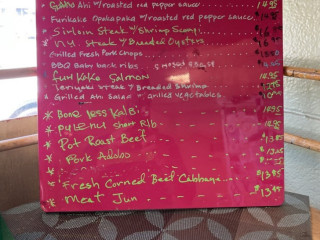 Ahi w/roasted red pepper sauce 14.95
* Furikake Opakapaka w/roasted red pepper sauce
* Sirloin Steak w/Shrimp Scampi
* N.Y. Steak w/Breaded Oysters
* Grilled Fresh Pork Chops
* BBQ Baby back ribs
* Furikake Salmon
* Teriyaki Steak / Breaded Shrimp
* Grilled Ahi Salad - grilled vegetables
* Bone less Kalbi - - - - 14.95
* Pulehu Short Rib - - - 14.95
* Pot Roast Beef - - - $13.95
* Pork Adobo - - -
* Fresh Corned Beef Cabbage - - $13.95
* Meat Jun - - - - $13.95